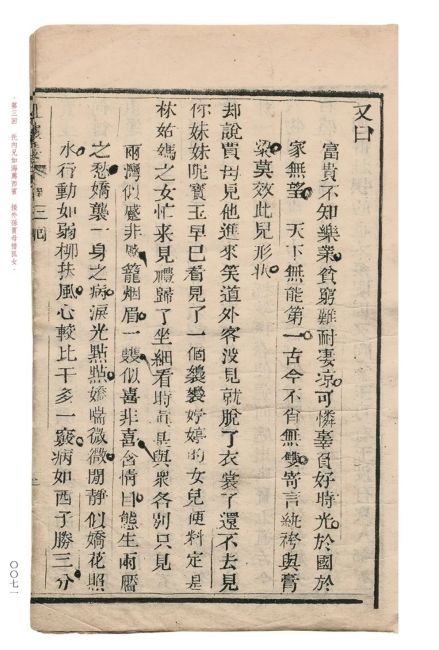 又曰
富貴不知樂業貧窮難耐凄凉可憐辜負好時光於國於
家無望 天下無能第一古今不肖無雙寄言紈袴與膏
粱莫效此兒形狀
却說賈母見他進來笑道外客没見就脫了衣裳了還不去見
你妹妹呢寳玉早已看見了一個裊裊婷婷的女兒便料定是
林姑媽之女忙來見禮歸了坐細看時真是與衆各别只見
兩灣似蹙非蹙籠烟眉一雙似喜非喜含情目態生兩靨
之愁嬌襲一身之病淚光點點嬌喘微微閒靜似嬌花照
水行動如弱柳扶風心較比干多一竅病如西子勝三分
第三回 托内兄如海薦西賓 接外孫賈母惜孤女
〇〇七一